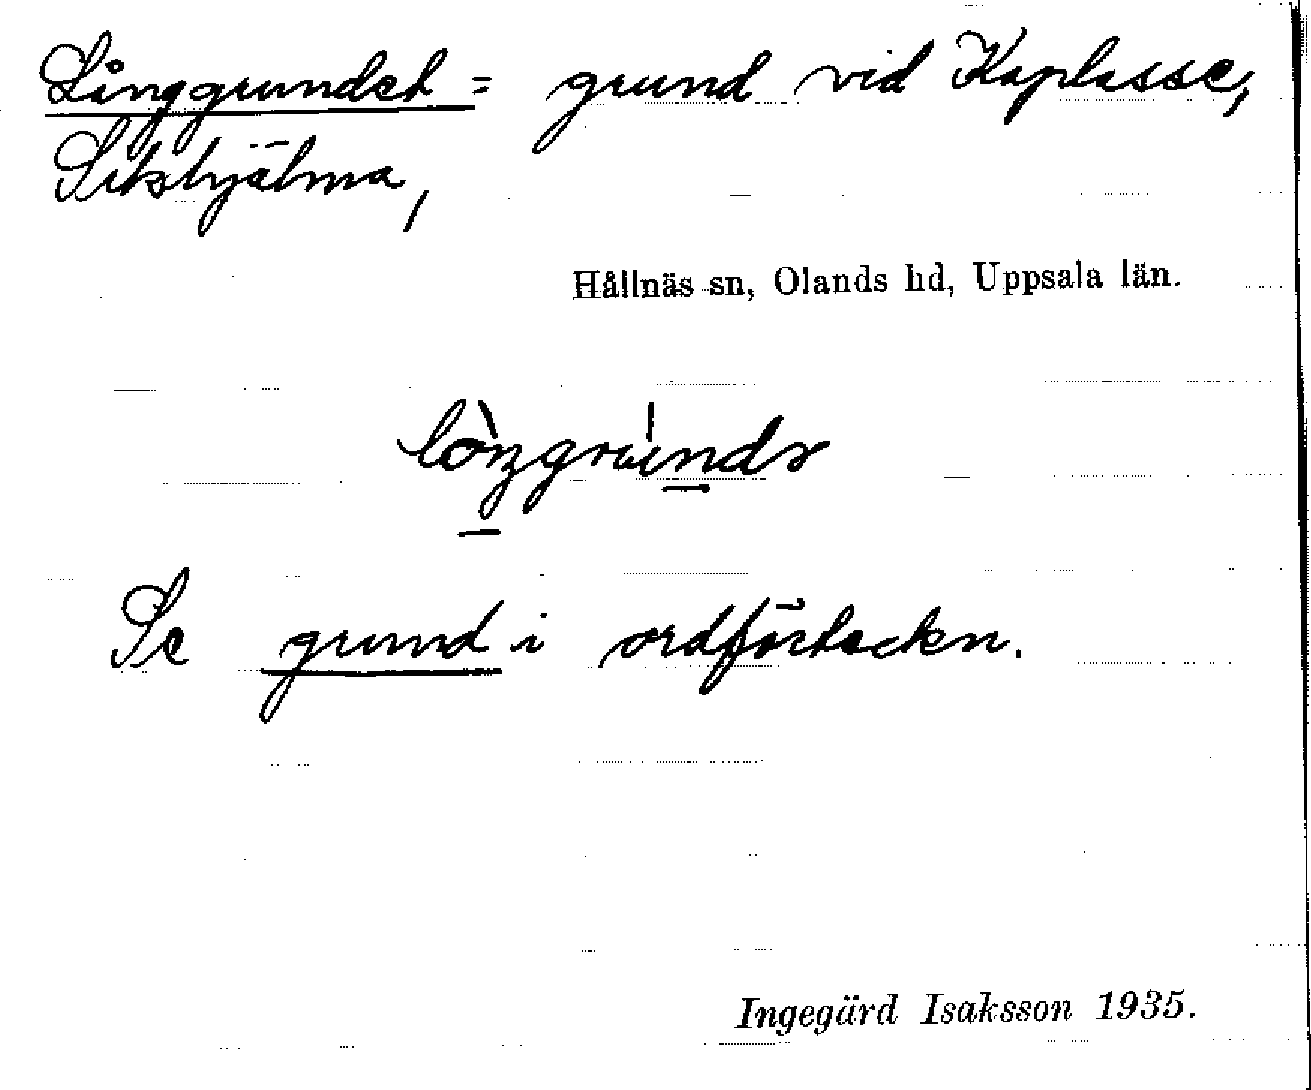 Långgrundet = grund vid Kaplasse,
Sikhjälma,
Hållnäs sn, Olands hd, Uppsala län.
Se grund i ordförteckn.
Ingegärd Isaksson 1935.